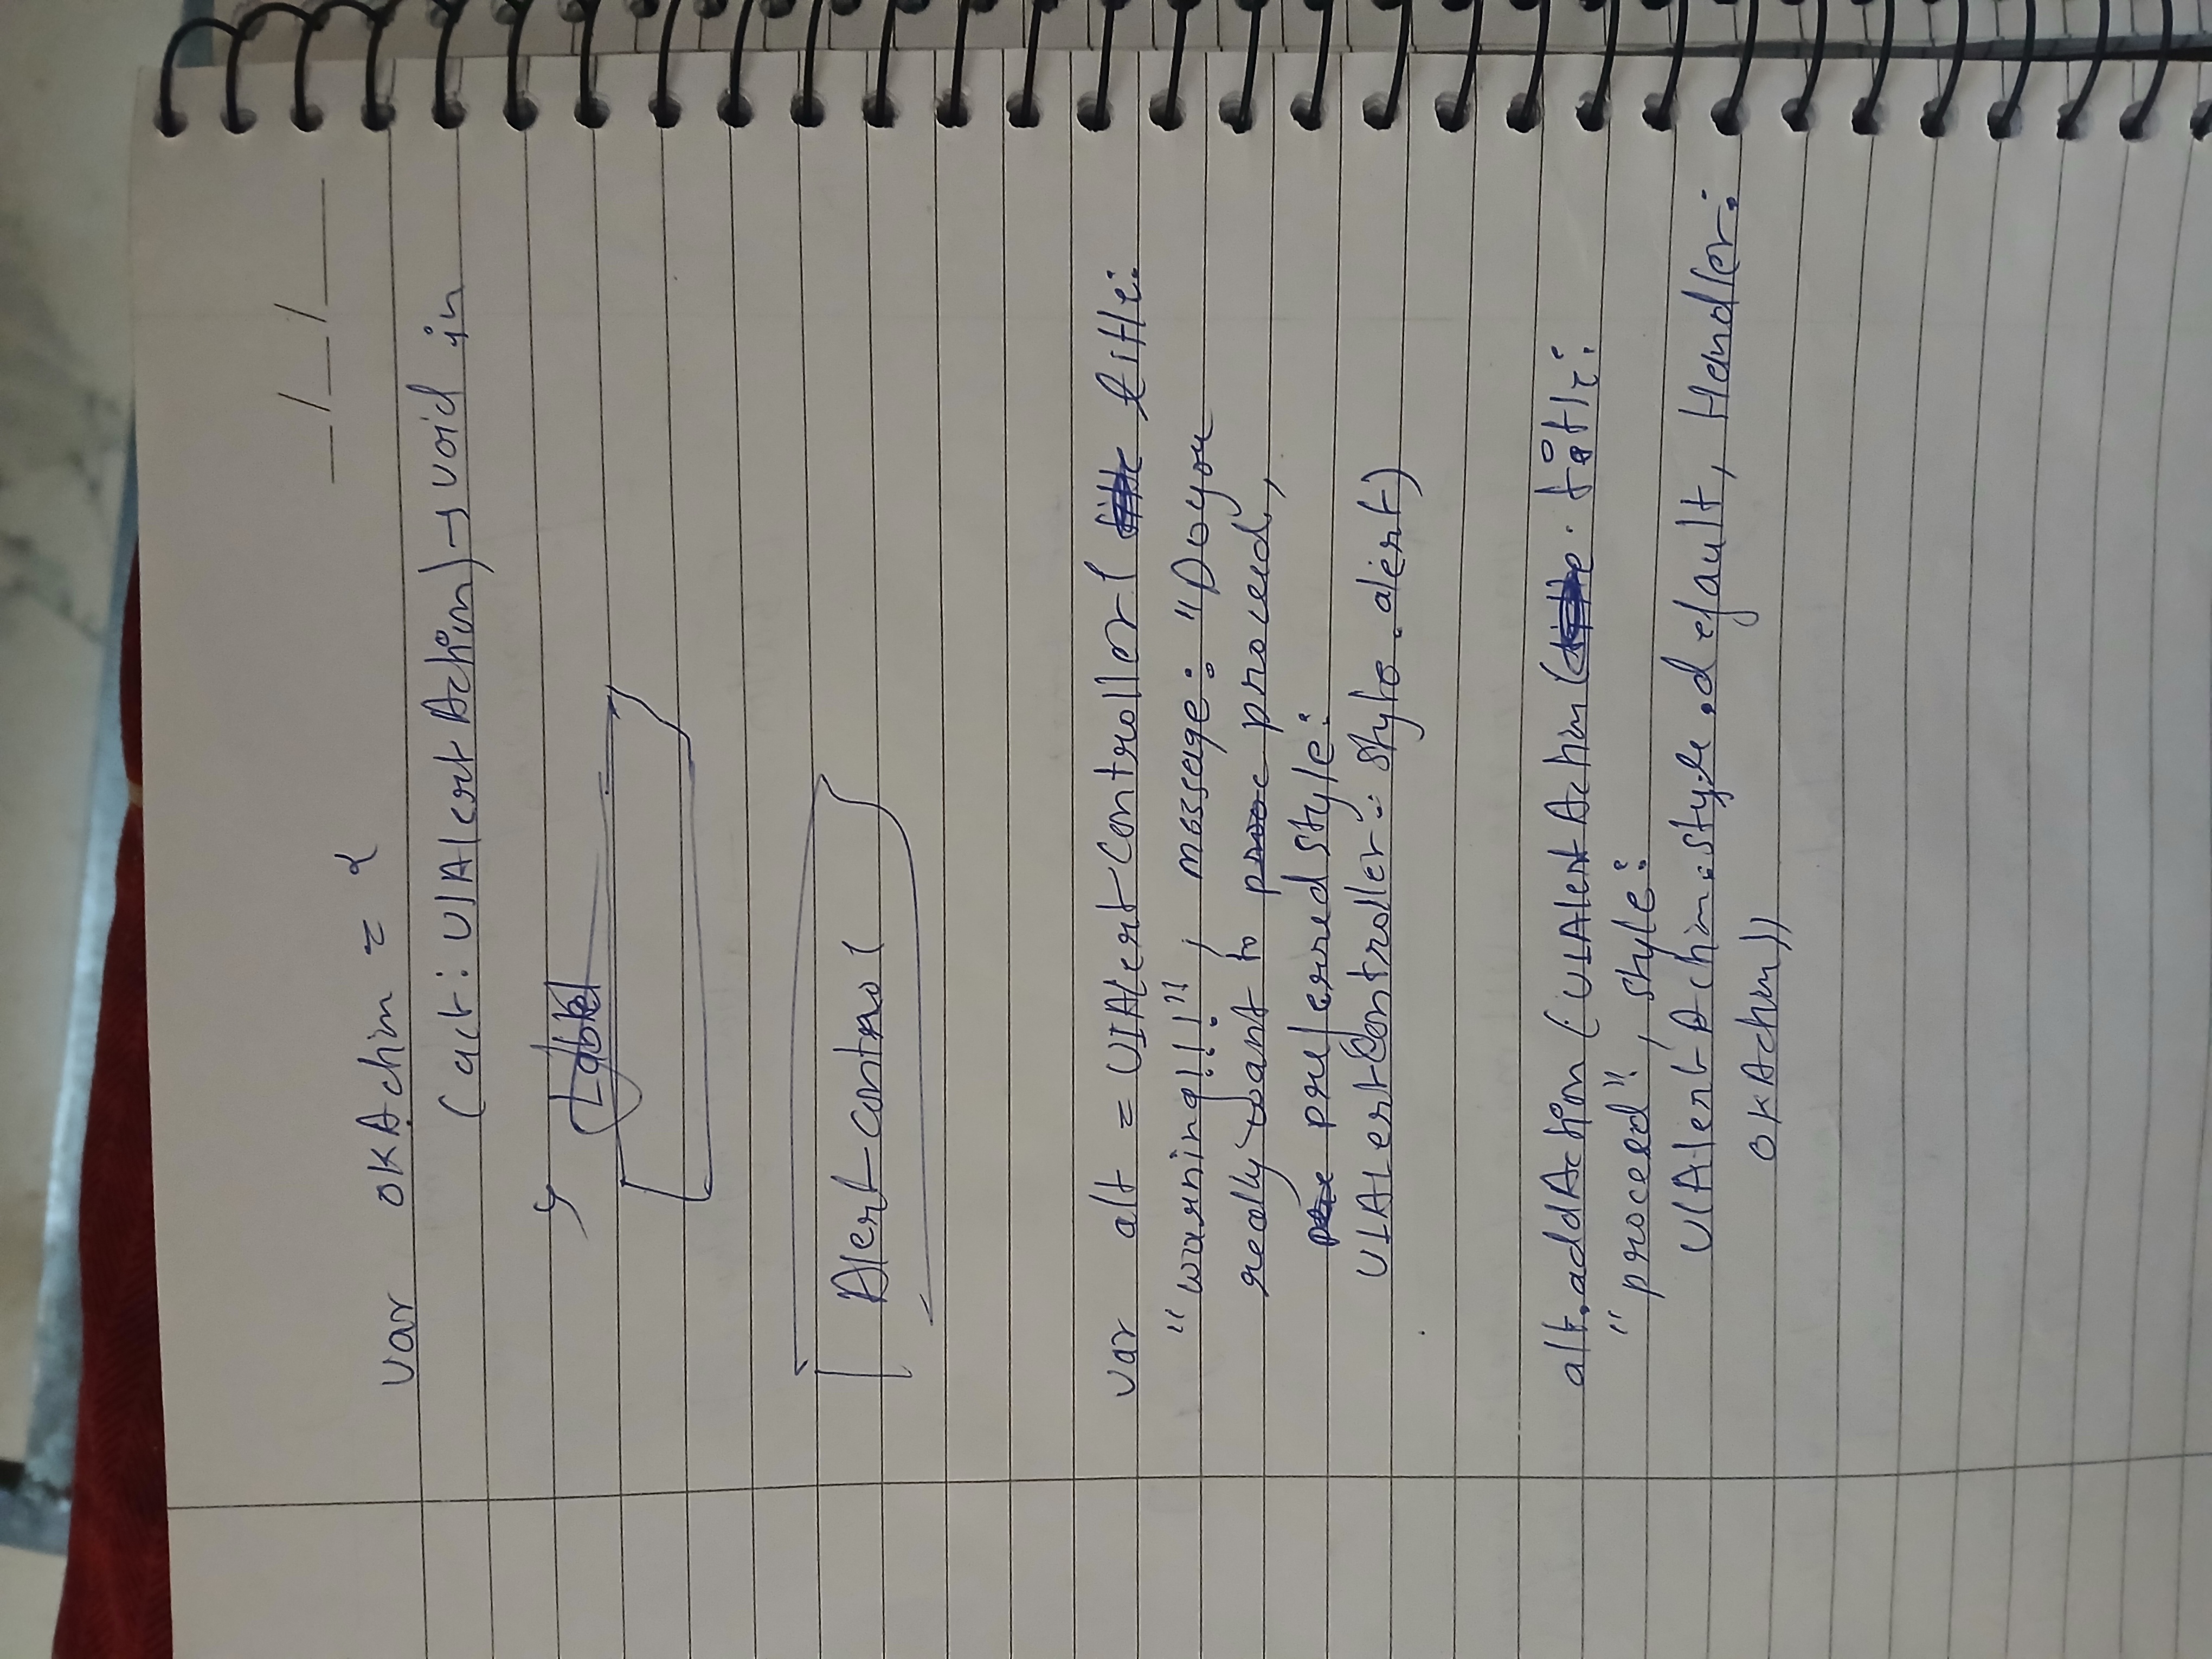 __/__/____
var okAction = {
(act: UIAlertAction) → void in
}
Alert control
var alt = UIAlertController( title:
"warning!!!", message: "Do you
really want to proceed,
preferred style:
UIALertController. style.alert)
alt.addAction (UIAlertAction( title:
"proceed", style:
UIAlertAction.style.default, Handler:
okAction))